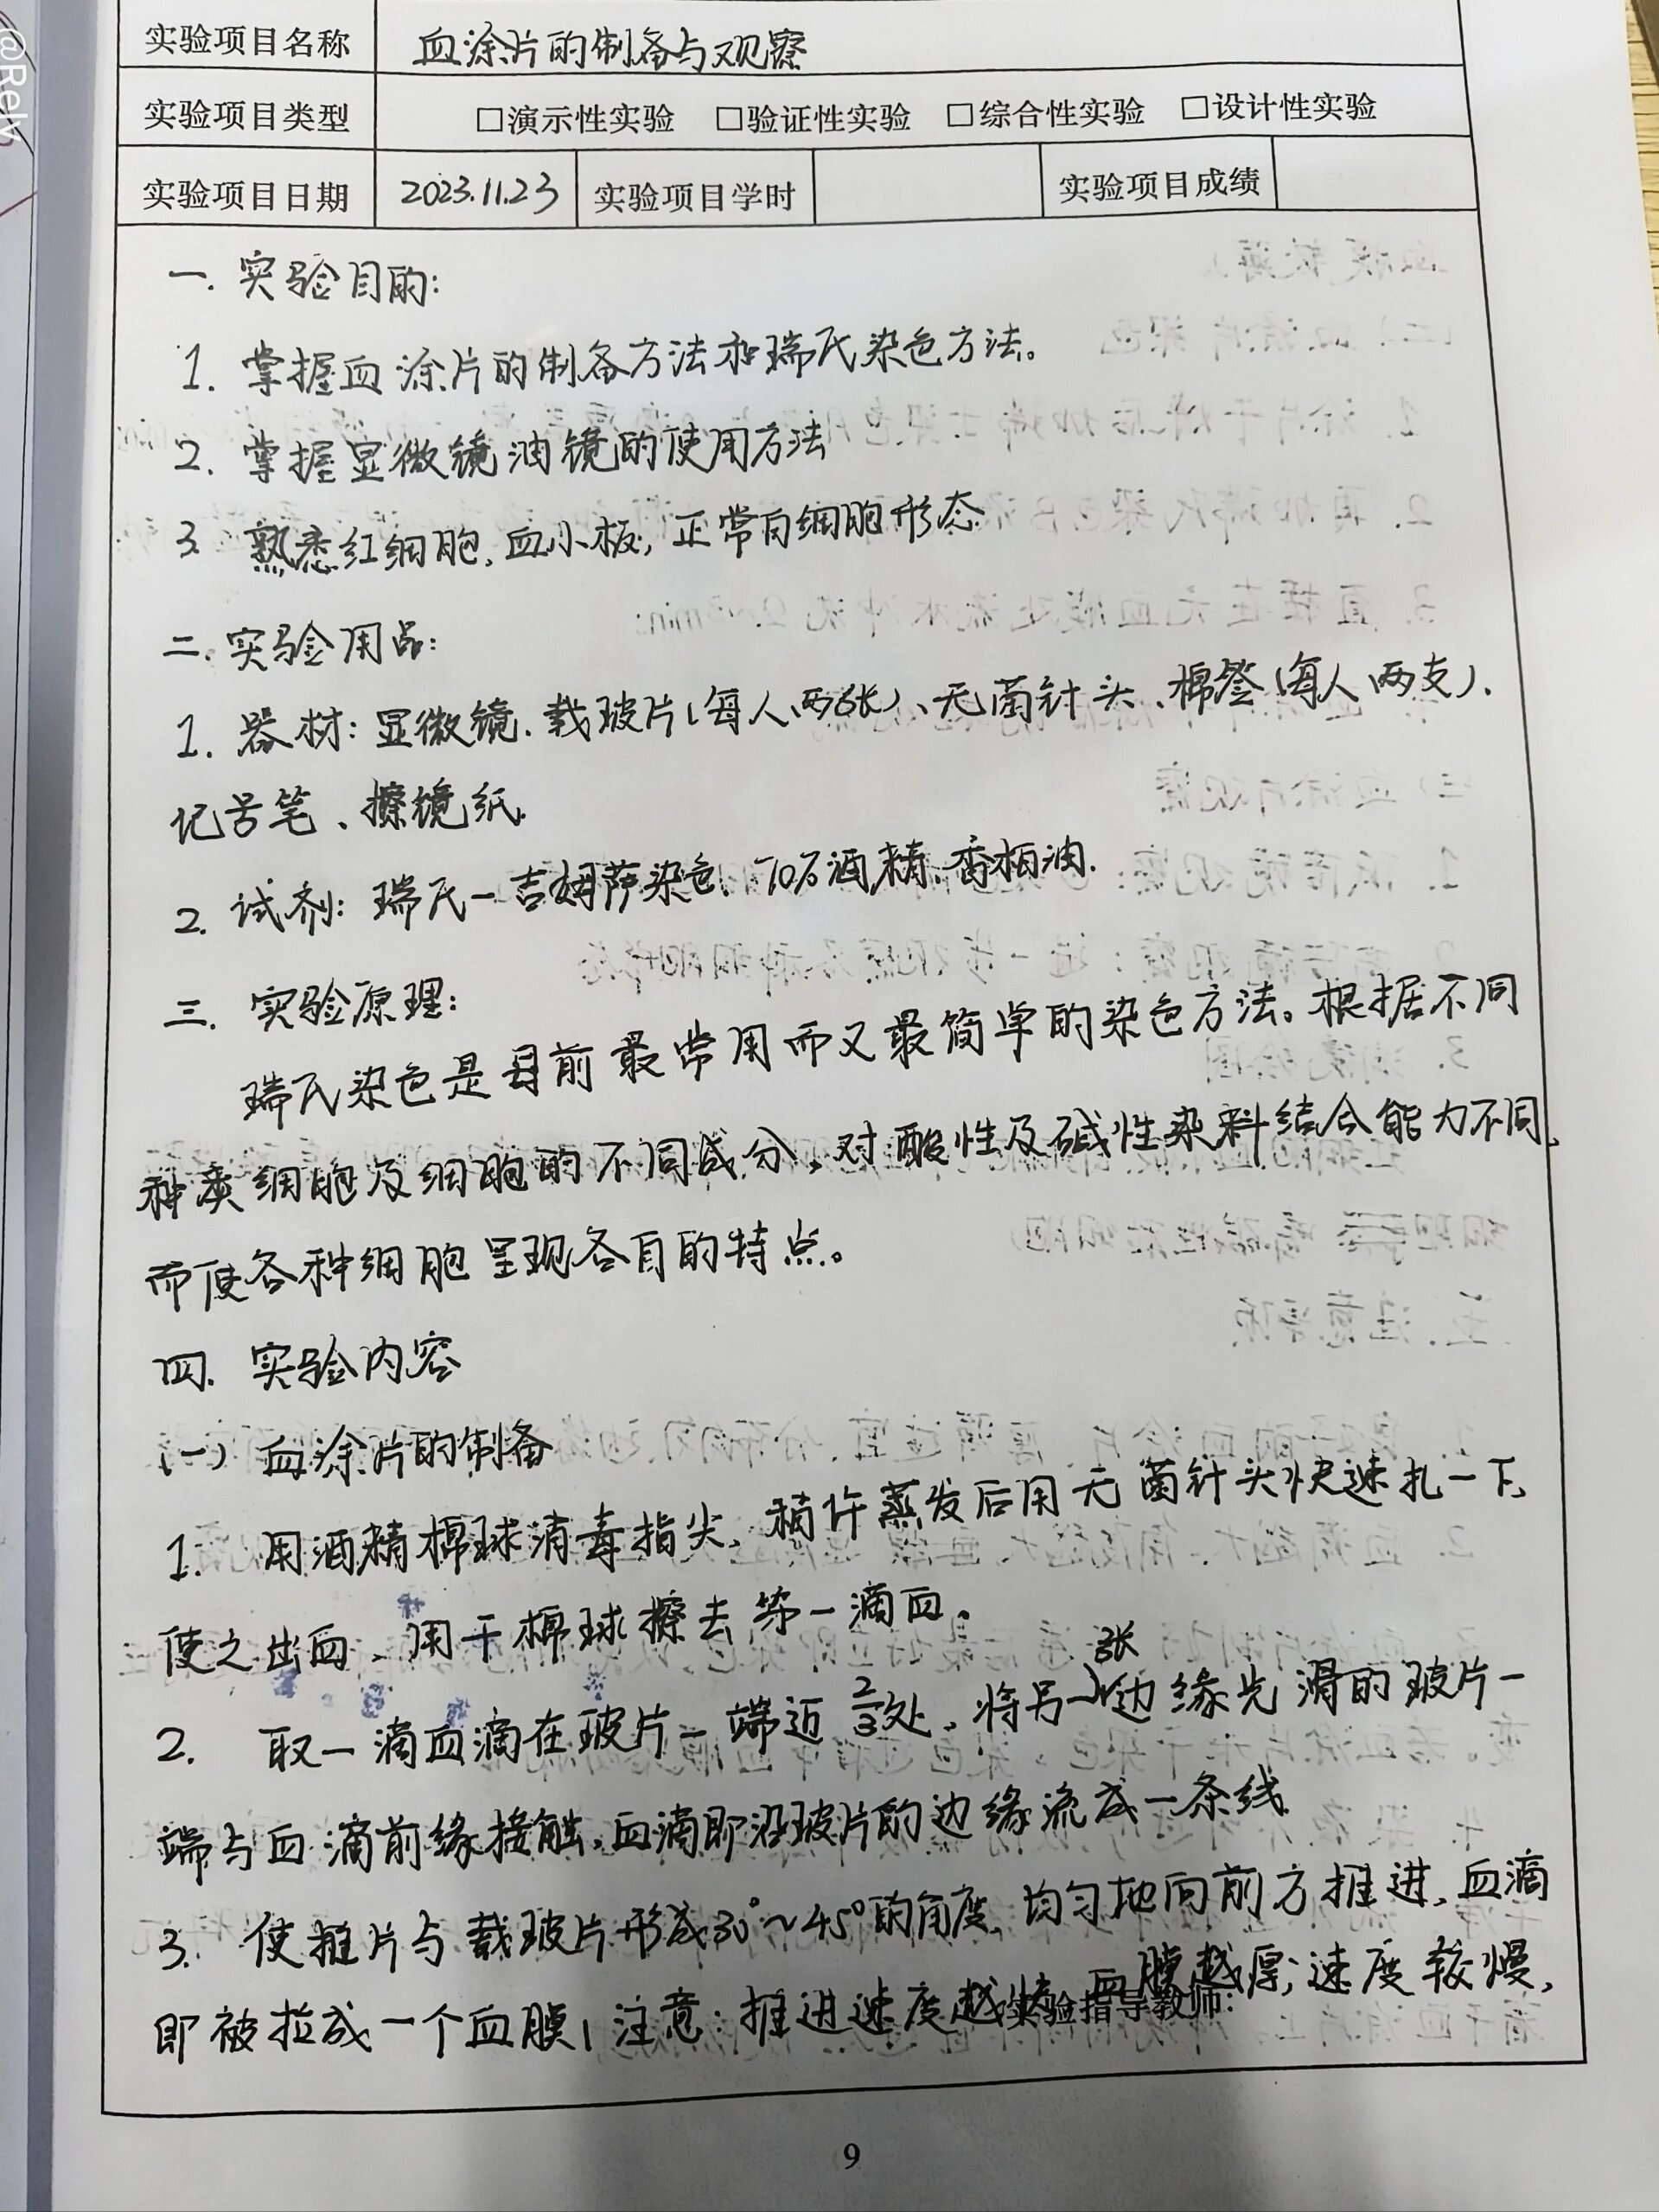 @Relv
实验项目名称 血涂片的制备与观察
实验项目类型 □演示性实验 □验证性实验 □综合性实验 □设计性实验
实验项目日期 2023.11.23 实验项目学时 实验项目成绩
一. 实验目的:
1. 掌握血涂片的制备方法和瑞氏染色方法。
2. 掌握显微镜油镜的使用方法
3. 熟悉红细胞、血小板, 正常白细胞形态.
二. 实验用品:
1. 器材: 显微镜. 载玻片(每人两张)、无菌针头、棉签(每人两支).
记号笔、擦镜纸.
2. 试剂: 瑞氏-吉姆萨染色、70%酒精、香柏油.
三. 实验原理:
瑞氏染色是目前最常用而又最简单的染色方法。根据不同
种类细胞及细胞的不同成分, 对酸性及碱性染料结合能力不同,
而使各种细胞呈现各自的特点。
四. 实验内容
(一) 血涂片的制备
1. 用酒精棉球消毒指尖, 稍许蒸发后用无菌针头快速扎一下,
使之出血, 用干棉球擦去第一滴血。
2. 取一滴血滴在玻片一端近2/3处, 将另一张边缘光滑的玻片一
端与血滴前缘接触, 血滴即沿玻片的边缘流成一条线.
3. 使推片与载玻片形成30°~45°的角度, 均匀地向前方推进, 血滴
即被拉成一个血膜(注意: 推进速度越快 血膜越厚; 速度较慢,
实验指导教师:
9